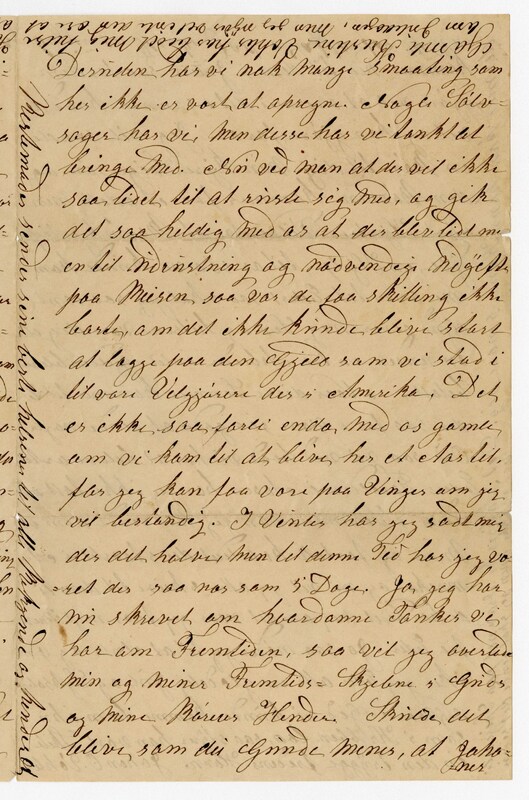 Desuden har vi nok mange Smaating som
her ikke er vort at opregne. Nogle Sølv-
sager har vi, men desse har vi tænkt at
bringe med. Nu ved man at der vil ikke
saa lidet til at ruste sig med, og gik
det saa heldig med os at der blev lidt m
en til Udrustning og nødvendige Udgifte
paa Reisen saa var de faa skilling ikke
borte, om det ikke kunde blive stort
at lægge paa den Gjæld som vi stod i
til vore Velgjørere der i Amerika. Det
er ikke saa farli enda med os gamle
om vi kom til at blive her et Aar til.
for jeg kan faa være paa Vinger om jeg
vil bestandig. I Vinter har jeg sadt mig
der det halve, men til denne Tid har jeg væ-
=ret der saa nær som 5 Dage. Ja, jeg har
nu skrevet om hvordanne Tanker vi
har om Fremtiden, saa vil jeg overlade
min og mines Fremtids= Skjebne i Guds
og mine Kjæres Hender. Skulde det
blive som du Gunde mener, at Joha-
nes
sender sine beste helsener til alle Bekjendte og Kender os